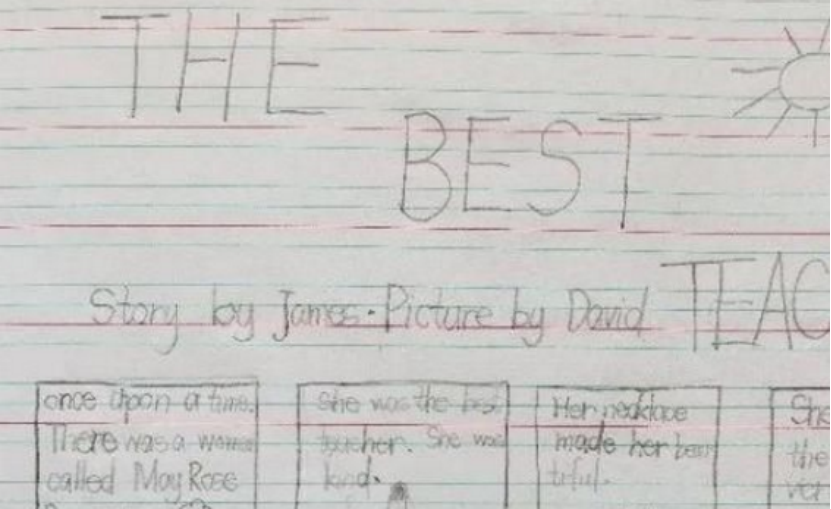 THE
BEST
TEAC
Story by James. Picture by David
once upon a time.
There was a woman
called May Rose
She was the best
teacher. She was
kind.
Her necklace
made her beau
tiful.
She
the
ver